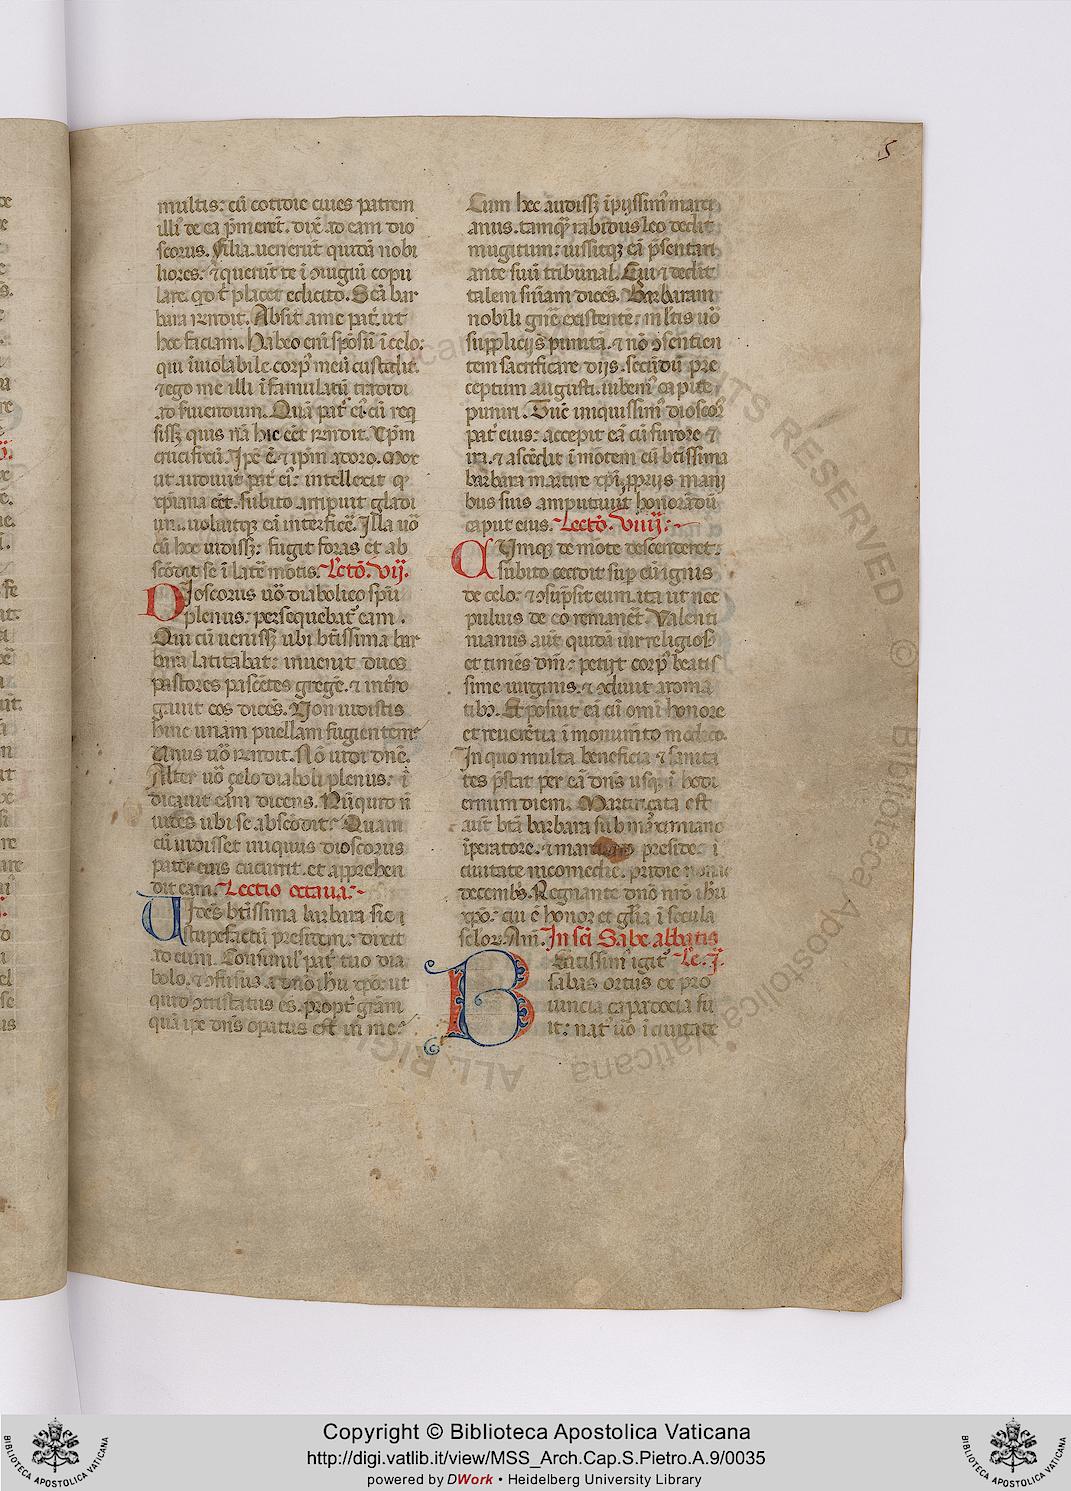 5
multis: cū cotidie ciues patrem
illi' de ea p̄meret̄. dix̄ ad eam dio
scorus. Filia uenerūt quidā nobi
liores: ⁊ querūt te ī ꝯiugiū copu
lare. qd t' placet edicito. Scā bar
bara r̄ndit. Absit a me pat̄ ut
hec faciam. Habeo eni sp̄sū ī celo:
qui īuiolabile corp' meū custodit.
⁊ ego me illi ī famulatū tradidi
ad fruendum. Quā pat̄ ei' cū req
sissꝫ quis nā hic eēt r̄ndit. Xp̄m
crucifixū. Ip̄e ē ⁊ ip̄m adoro. Mox
ut audiuit pat̄ ei': intellexit q
xp̄iana eēt. subito arripuit gladi
um. uoluitqꝫ eā interficē. Illa uō
cū hec uidissꝫ: fugit foras et ab
scōdit se ī late mōtis. Lectō. vij.
Dioscorus uō diabolico sp̄u
plenus: persequebat' eam.
Qui cū uenissꝫ ubi btissima bar
bara latitabat: inuenit duos
pastores pascētes gregē. ⁊ intro
gauit eos dicēs. Non uidistis
hinc unam puellam fugientem:
Unus uō r̄ndit. Nō uidi dnē.
Alter uō zelo diaboli plenus: ī
dicauit eam dicens. Nūquid nō
uides ubi se abscōdit: Quam
cū uidisset iniquus dioscorus
pater eius cucurrit. et apprehen
dit eam. Lectio octaua:
Uidēs btissima barbara sic ī
stupefactū presidem: dixit
ad eum. Consimil' pat̄ tuo dia
bolo. ⁊ ꝯfisus a dnō ihū xp̄o: ut
quid ꝯtristatus es. propt' grām
quā ip̄e dns opatus est in me:
Cum hec audissꝫ īpiissim' marci
anus. tamqꝫ rabidus leo dedit
mugitum: iussitqꝫ eā p̄sentari
ante suū tribunal. Cui ⁊ dedit
talem sniam dicēs. Barbaram
nobili gn̄e existente: in ltis uō
suppliciis punita. ⁊ nō ꝯsentien
tem sacrificare diis. secūdū pre
ceptum augusti. iubem' capite
puniri. Tūc iniquissim' dioscor'
pat̄ eius: accepit eā cū furore ⁊
ira. ⁊ ascēdit ī mōtem cū btissima
barbara martire xp̄i. p̄priis mani
bus suis amputauit honorādū
caput eius. Lectō. viiij:
Cumqꝫ de mōte descenderet:
subito cecidit sup eū ignis
de celo: ⁊ ꝯsūpsit eum. ita ut nec
puluis de eo remaneret. Valenti
nianus aut̄ quidā uir religios'
et timēs dm̄: petiit corp' beatis
sime uirginis. ⁊ ꝯdiuit aroma
tibꝫ. Et posuit eā cū omī honore
et reuerētia ī monumto modico.
In quo multa beneficia ⁊ sanita
tes p̄stat per eā dns usqꝫ ī hodi
ernum diem. Martirizata est
aut̄ btā barbara sub maximiano
īperatore. ⁊ preside. ī
ciuitate nicomedie. pridie nonis
decembꝫ. Regnante dnō nrō ihū
xp̄o: cui ē honor et glia ī secula
selorꝫ. Am̄. In sci Sabe abbatis
Beatissim' igit̄ Le. j.
sabas ortus ex pro
uincia capadocia fu
it: nat' uō ī ciuitate
© Biblioteca Apostolica Vaticana
ALL RIGHTS RESERVED
Copyright © Biblioteca Apostolica Vaticana
http://digi.vatlib.it/view/MSS_Arch.Cap.S.Pietro.A.9/0035
powered by DWork • Heidelberg University Library
BIBLIOTECA APOSTOLICA VATICANA
BIBLIOTECA APOSTOLICA VATICANA